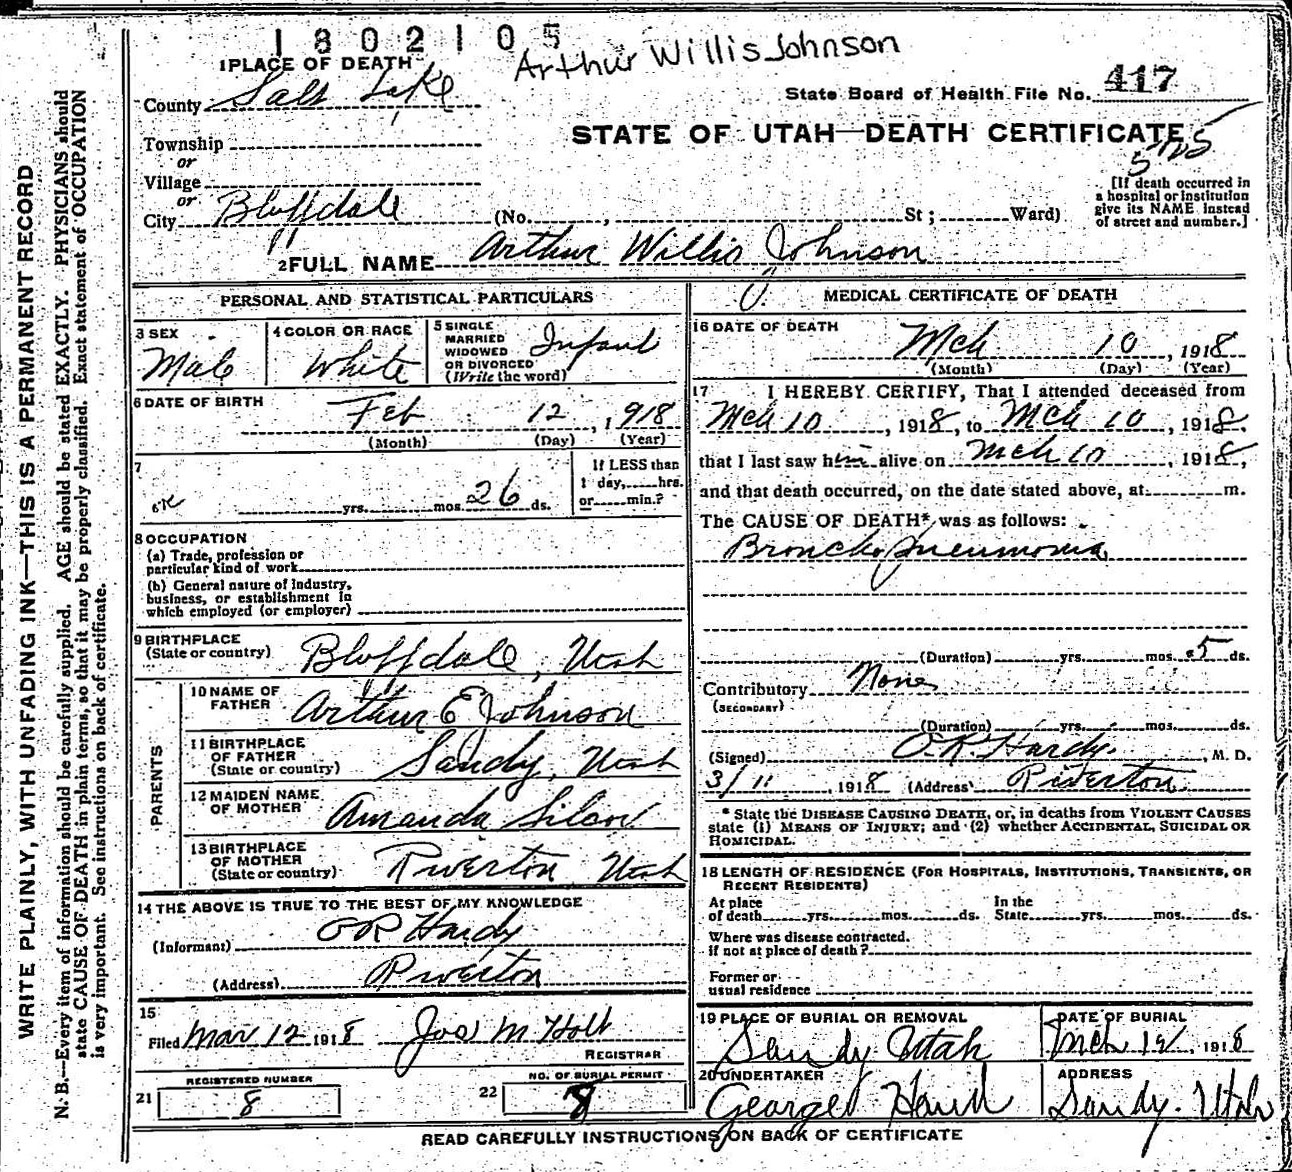 1802105
Arthur Willis Johnson
1 PLACE OF DEATH
County Salt Lake
State Board of Health File No. 417
STATE OF UTAH—DEATH CERTIFICATE
Township
or
Village
or
City Bluffdale (No. , St; Ward)
[If death occurred in
a hospital or institution
give its NAME instead
of street and number.]
2 FULL NAME Arthur Willis Johnson
PERSONAL AND STATISTICAL PARTICULARS
3 SEX
Male
4 COLOR OR RACE
White
5 SINGLE
MARRIED
WIDOWED
OR DIVORCED
(Write the word)
Infant
6 DATE OF BIRTH
Feb 12, 1918
(Month) (Day) (Year)
7
yrs. mos. 26 ds.
If LESS than
1 day, hrs.
or min.?
8 OCCUPATION
(a) Trade, profession or
particular kind of work
(b) General nature of Industry,
business, or establishment in
which employed (or employer)
9 BIRTHPLACE
(State or country) Bluffdale, Utah
PARENTS
10 NAME OF
FATHER Arthur E Johnson
11 BIRTHPLACE
OF FATHER
(State or country) Sandy, Utah
12 MAIDEN NAME
OF MOTHER Amanda Silcox
13 BIRTHPLACE
OF MOTHER
(State or country) Riverton Utah
14 THE ABOVE IS TRUE TO THE BEST OF MY KNOWLEDGE
(Informant) O R Hardy
(Address) Riverton
15
Filed Mar 12 1918 Jos M Holt
REGISTRAR
REGISTERED NUMBER
21 8
NO. OF BURIAL PERMIT
22 8
MEDICAL CERTIFICATE OF DEATH
16 DATE OF DEATH
Mch 10, 1918
(Month) (Day) (Year)
17 I HEREBY CERTIFY, That I attended deceased from
Mch 10, 1918, to Mch 10, 1918.
that I last saw him alive on Mch 10, 1918,
and that death occurred, on the date stated above, at m.
The CAUSE OF DEATH* was as follows:
Broncho pneumonia
(Duration) yrs. mos. 5 ds.
Contributory None
(SECONDARY)
(Duration) yrs. mos. ds.
(Signed) O.R. Hardy, M. D.
3/11, 1918 (Address) Riverton
* State the DISEASE CAUSING DEATH, or, in deaths from VIOLENT CAUSES
state (1) MEANS OF INJURY; and (2) whether ACCIDENTAL, SUICIDAL OR
HOMICIDAL.
18 LENGTH OF RESIDENCE (FOR HOSPITALS, INSTITUTIONS, TRANSIENTS, OR
RECENT RESIDENTS)
At place
of death yrs. mos. ds.
In the
State yrs. mos. ds.
Where was disease contracted.
if not at place of death?
Former or
usual residence
19 PLACE OF BURIAL OR REMOVAL
Sandy Utah
DATE OF BURIAL
Mch 12, 1918
20 UNDERTAKER
George
ADDRESS
Sandy. Utah
READ CAREFULLY INSTRUCTIONS ON BACK OF CERTIFICATE
WRITE PLAINLY, WITH UNFADING INK—THIS IS A PERMANENT RECORD
N. B.—Every item of information should be carefully supplied. AGE should be stated EXACTLY. PHYSICIANS should
state CAUSE OF DEATH in plain terms, so that it may be properly classified. Exact statement of OCCUPATION
is very important. See instructions on back of certificate.